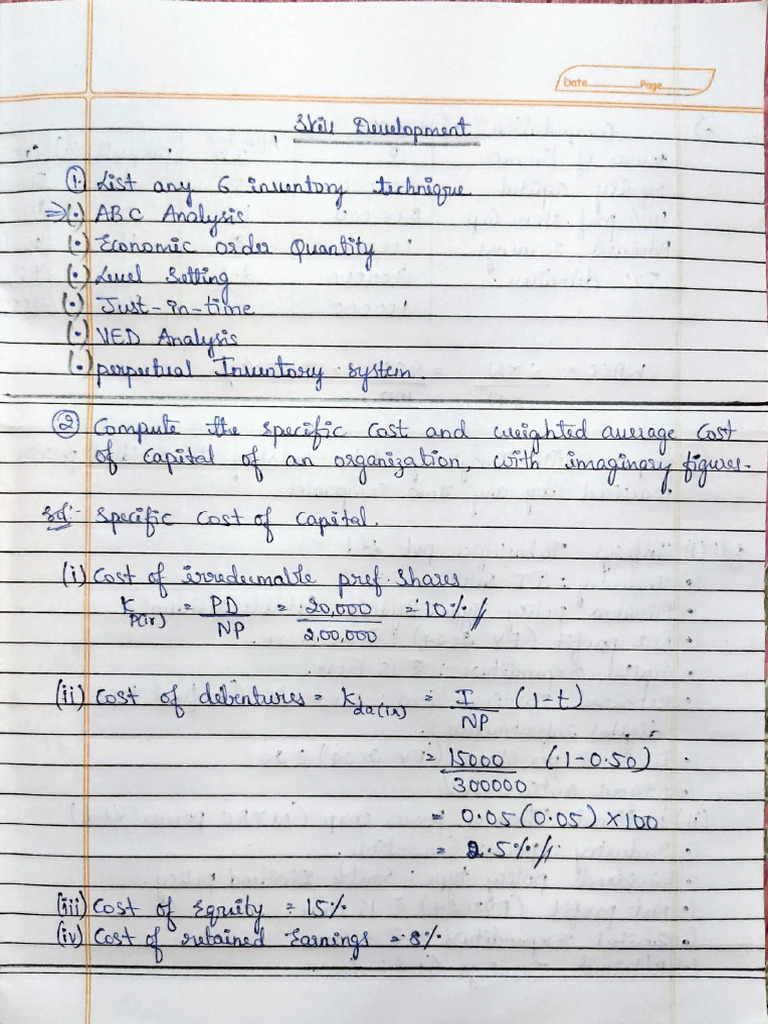 Date Page
Skill Development
① List any 6 inventory technique
⇒(•) ABC Analysis
(•) Economic order Quantity
(•) Level Setting
(•) Just-in-time
(•) VED Analysis
(•) perpetual Inventory system
② Compute the specific cost and weighted average cost
of capital of an organization, with imaginary figures.
Sol:- Specific cost of capital.
(i) Cost of irredeemable pref. shares
K P(ir) = PD / NP = 20,000 / 2,00,000 = 10%
(ii) Cost of debentures = K da(ir) = I / NP (1-t)
= 15000 / 300000 (1-0.50)
= 0.05(0.05) × 100
= 2.5%
(iii) Cost of Equity = 15%
(iv) Cost of retained Earnings = 8%